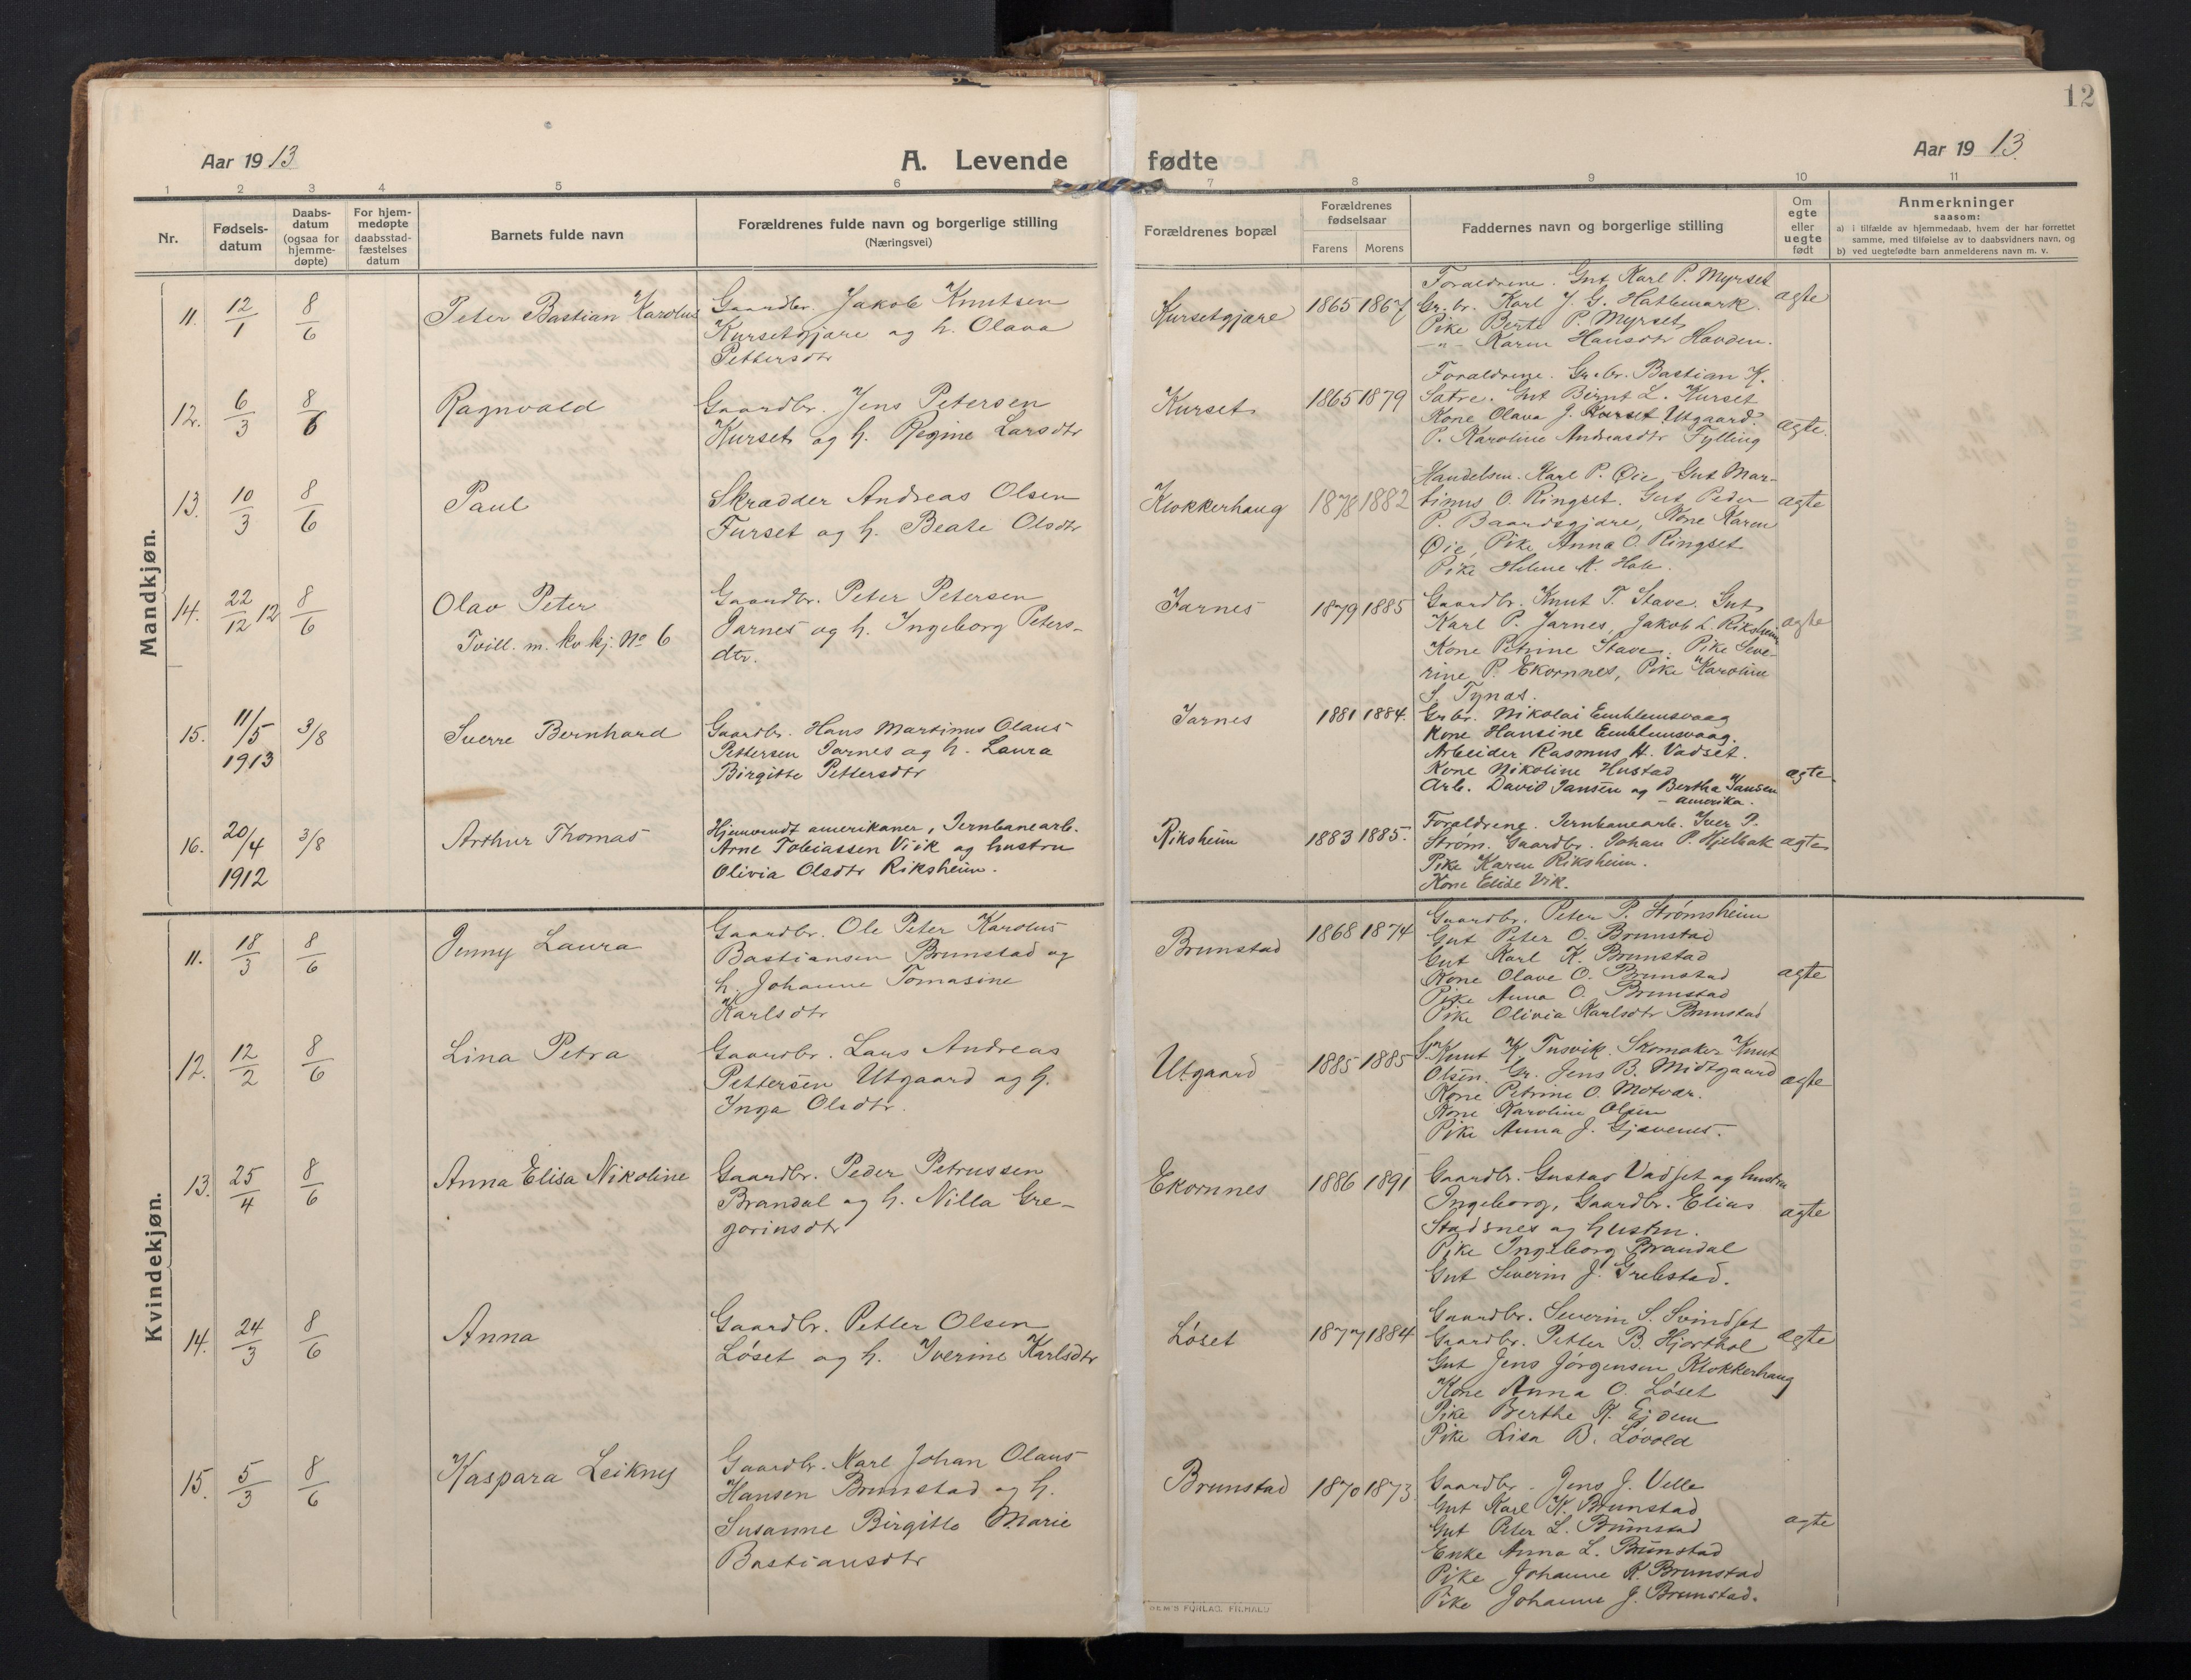 12
Aar 1913
A. Levende fødte
Aar 1913
1 2 3 4 5 6 7 8 9 10 11
Nr.
Fødsels-
datum
Daabs-
datum
(ogsaa for
hjemme-
døpte)
For hjem-
medøpte
daabsstad-
fæstelses
datum
Barnets fulde navn
Forældrenes fulde navn og borgerlige stilling
(Næringsvei)
Forældrenes bopæl
Forældrenes
fødselsaar
Farens Morens
Faddernes navn og borgerlige stilling
Om
egte
eller
uegte
født
Anmerkninger
saasom:
a) i tilfælde av hjemmedaab, hvem der har forrettet
samme, med tilføielse av to daabsvidners navn, og
b) ved uegtefødte barn anmelderens navn m. v.
Mandkjøn.
11. 12/1 8/6
Peter Bastian Karolus
Gaardbr. Jakob Knutsen
Kursetgjære og h. Olava
Pettersdtr
Kursetgjære
1865 1867
Forældrene. Gut Karl P. Myrset
Gr. br. Karl J. G. Hatlemark.
Pike Berte P. Myrset
-"- Karen Hansdtr Hovden.
ægte
12. 6/3 8/6
Ragnvald
Gaardbr. Jens Petersen
Kurset og h. Regine Larsdtr
Kurset
1865 1879
Forældrene. Gr. br. Bastian K.
Sætre. Gut Bernt L. Kurset
Kone Olava J. Kurset Utgaard.
P. Karoline Andreasdtr Fylling
ægte.
13. 10/3 8/6
Paul
Skrædder Andreas Olsen
Furset og h. Beate Olsdtr
Klokkerhaug
1878 1882
Handelsm. Karl P. Øie, Gut Mar-
tinus O. Ringset. Gut Peder
P. Baardsgjære, Kone Karen
Øie, Pike Anna O. Ringset
Pike Helene K. Hole.
ægte
14. 22/12 12 8/6
Olav Peter
Tvill. m. kvkj. No 6
Gaardbr. Peter Petersen
Jarnes og h. Ingeborg Peters-
dtr.
Jarnes
1879 1885
Gaardbr. Knut T. Stave. Gut
Karl P. Jarnes, Jakob L. Riksheim
Kone Petrine Stave. Pike Seve-
rine P. Ekornnes, Pike Karoline
S. Tynes.
ægte
15. 11/5 1913 3/8
Sverre Bernhard
Gaardbr. Hans Martinus Olaus
Pettersen Jarnes og h. Laura
Birgitte Pettersdtr
Jarnes
1881 1884.
Grbr. Nikolai Emblemsvaag
Kone Hansine Emblemsvaag.
Arbeider Rasmus H. Vadset.
Kone Nikoline Hustad
Arb. David Jansen og Bertha Jansen
- Amerika.
ægte.
16. 20/4 1912 3/8
Arthur Thomas
Hjemvendt amerikaner, Jernbanearb.
Arne Tobiassen Viik og hustru
Olivia Olsdtr Riksheim.
Riksheim
1883 1885.
Forældrene. Jernbanearb. Iver P.
Strøm. Gaardbr. Johan P. Hjelbak
Pike Karen Riksheim.
Kone Elide Vik.
ægte
Kvindekjøn.
11. 18/3 8/6
Jenny Laura
Gaardbr. Ole Peter Karolus
Bastiansen Brunstad og
h. Johanne Tomasine
Karlsdtr
Brunstad
1868 1874
Gaardbr. Peter P. Strømsheim
Gut Peter O. Brunstad
Gut Karl K. Brunstad
Kone Olave O. Brunstad
Pike Anna O. Brunstad
Pike Olivia Karlsdtr Brunstad
ægte
12. 12/2 8/6
Lina Petra
Gaardbr. Lars Andreas
Pettersen Utgaard og h.
Inga Olsdtr.
Utgaard
1885 1885
G. Knut K. Tusvik. Skomaker Knut
Olsen. Gr. Jens B. Midtgaard
Kone Petrine O. Motvær.
Kone Karoline Olsen
Pike Anna J. Gjævenes.
ægte
13. 25/4 8/6
Anna Elisa Nikoline
Gaardbr. Peder Petrussen
Brandal og h. Nilla Gre-
goriusdtr
Ekornnes
1886 1891
Gaardbr. Gustav Vadset og hustru
Ingeborg, Gaardbr. Elias
Stadsnes og hustru.
Pike Ingeborg Brandal
Gut Severin J. Grebstad.
ægte
14. 24/3 8/6
Anna
Gaardbr. Petter Olsen
Løset og h. Iverine Karlsdtr
Løset
1877 1884
Gaardbr. Severin S. Svindset
Gaardbr. Petter B. Hjorthol
Gut Jens Jørgensen Klokkerhaug
Kone Anna O. Løset
Pike Berthe K. Ejdem
Pike Lisa B. Løvold
ægte
15. 5/3 8/6
Kaspara Leikny
Gaardbr. Karl Johan Olaus
Hansen Brunstad og h.
Susanne Birgitte Marie
Bastiansdtr
Brunstad
1870 1873.
Gaardbr. Jens J. Velle
Gut Karl K. Brunstad
Gut Peter L. Brunstad
Enke Anna L. Brunstad
Pike Johanne K. Brunstad
Pike Johanne J. Brunstad.
ægte